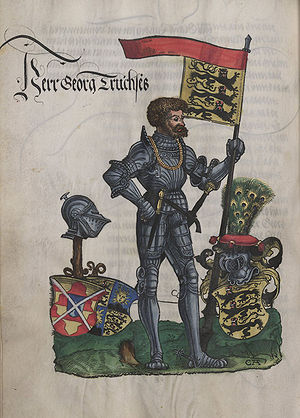 Herr Georg Truchses